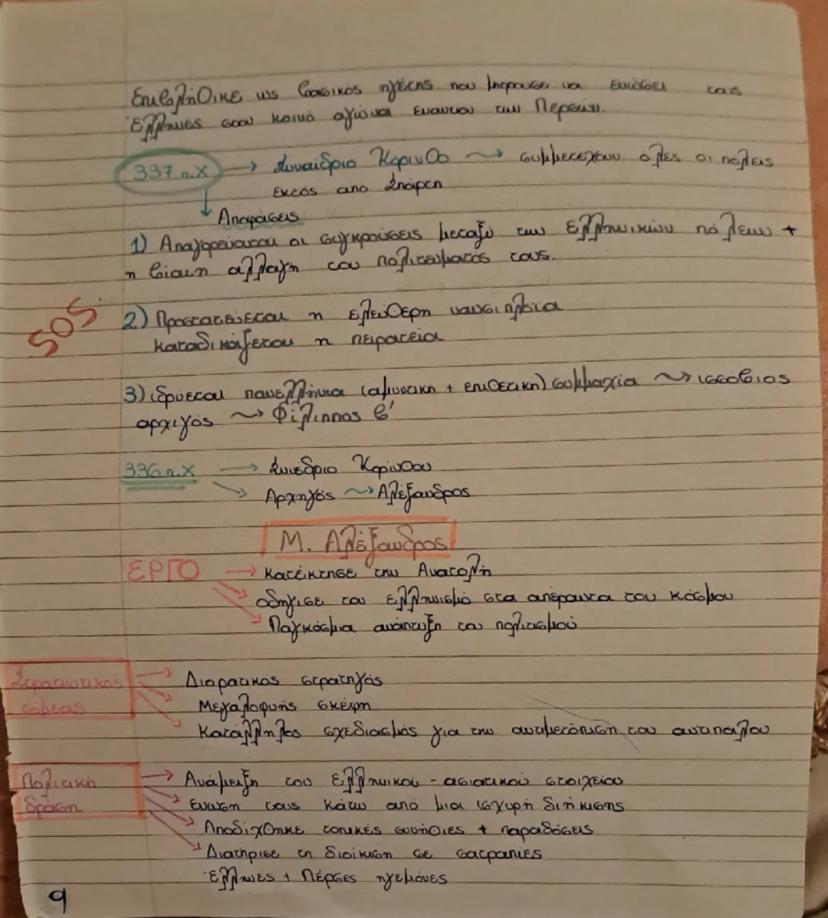 Επιβλήθηκε ως βασικός ηγέτης που μπόρεσε να ενώσει τους
Έλληνες στον κοινό αγώνα εναντίον των Περσών.
337 π.Χ → Συναίδριο Κορίνθο → συμμετέχουν όλες οι πόλεις
εκτός από Σπάρτη
↓ Αποφάσεις
1) Απαγορεύονται οι συγκρούσεις μεταξύ των ελληνικών πόλεων +
η βίαιη αλλαγή του πολιτεύματός τους.
SOS.
2) Προστατεύεται η ελεύθερη ναυσιπλοΐα
καταδικάζεται η πειρατεία
3) ιδρύεται πανελλήνια (αμυντική + επιθετική) συμμαχία → ισόβιος
αρχιγός → Φίλιππος Β'
336 π.Χ → Συνέδριο Κορίνθου
→ Αρχηγός → Αλέξανδρος
Μ. Αλέξανδρος
ΕΡΓΟ → κατέκτησε την Ανατολή
→ οδήγισε τον ελληνισμό στα απέραντα του κόσμου
→ Παγκόσμια ανάπτυξη του πολιτισμού
Στρατιωτικος τομέας
→ Διορατικος στρατηγός
→ Μεγαλοφυής σκέψη
→ Κατάλληλος σχεδιασμός για την αντιμετώπιση του αντιπάλου
Πολιτική δράση
→ Ανάμειξη του ελληνικού - ασιατικού στοιχείου
→ Ενωση τους κάτω από μια ισχυρή διήκισης
→ Αποδίχθηκε τοπικές συνήθιες + παραδόσεις
→ Διατήρισε τη διοίκιση σε σατραπίες
Έλληνες + Πέρσες ηγεμόνες
9